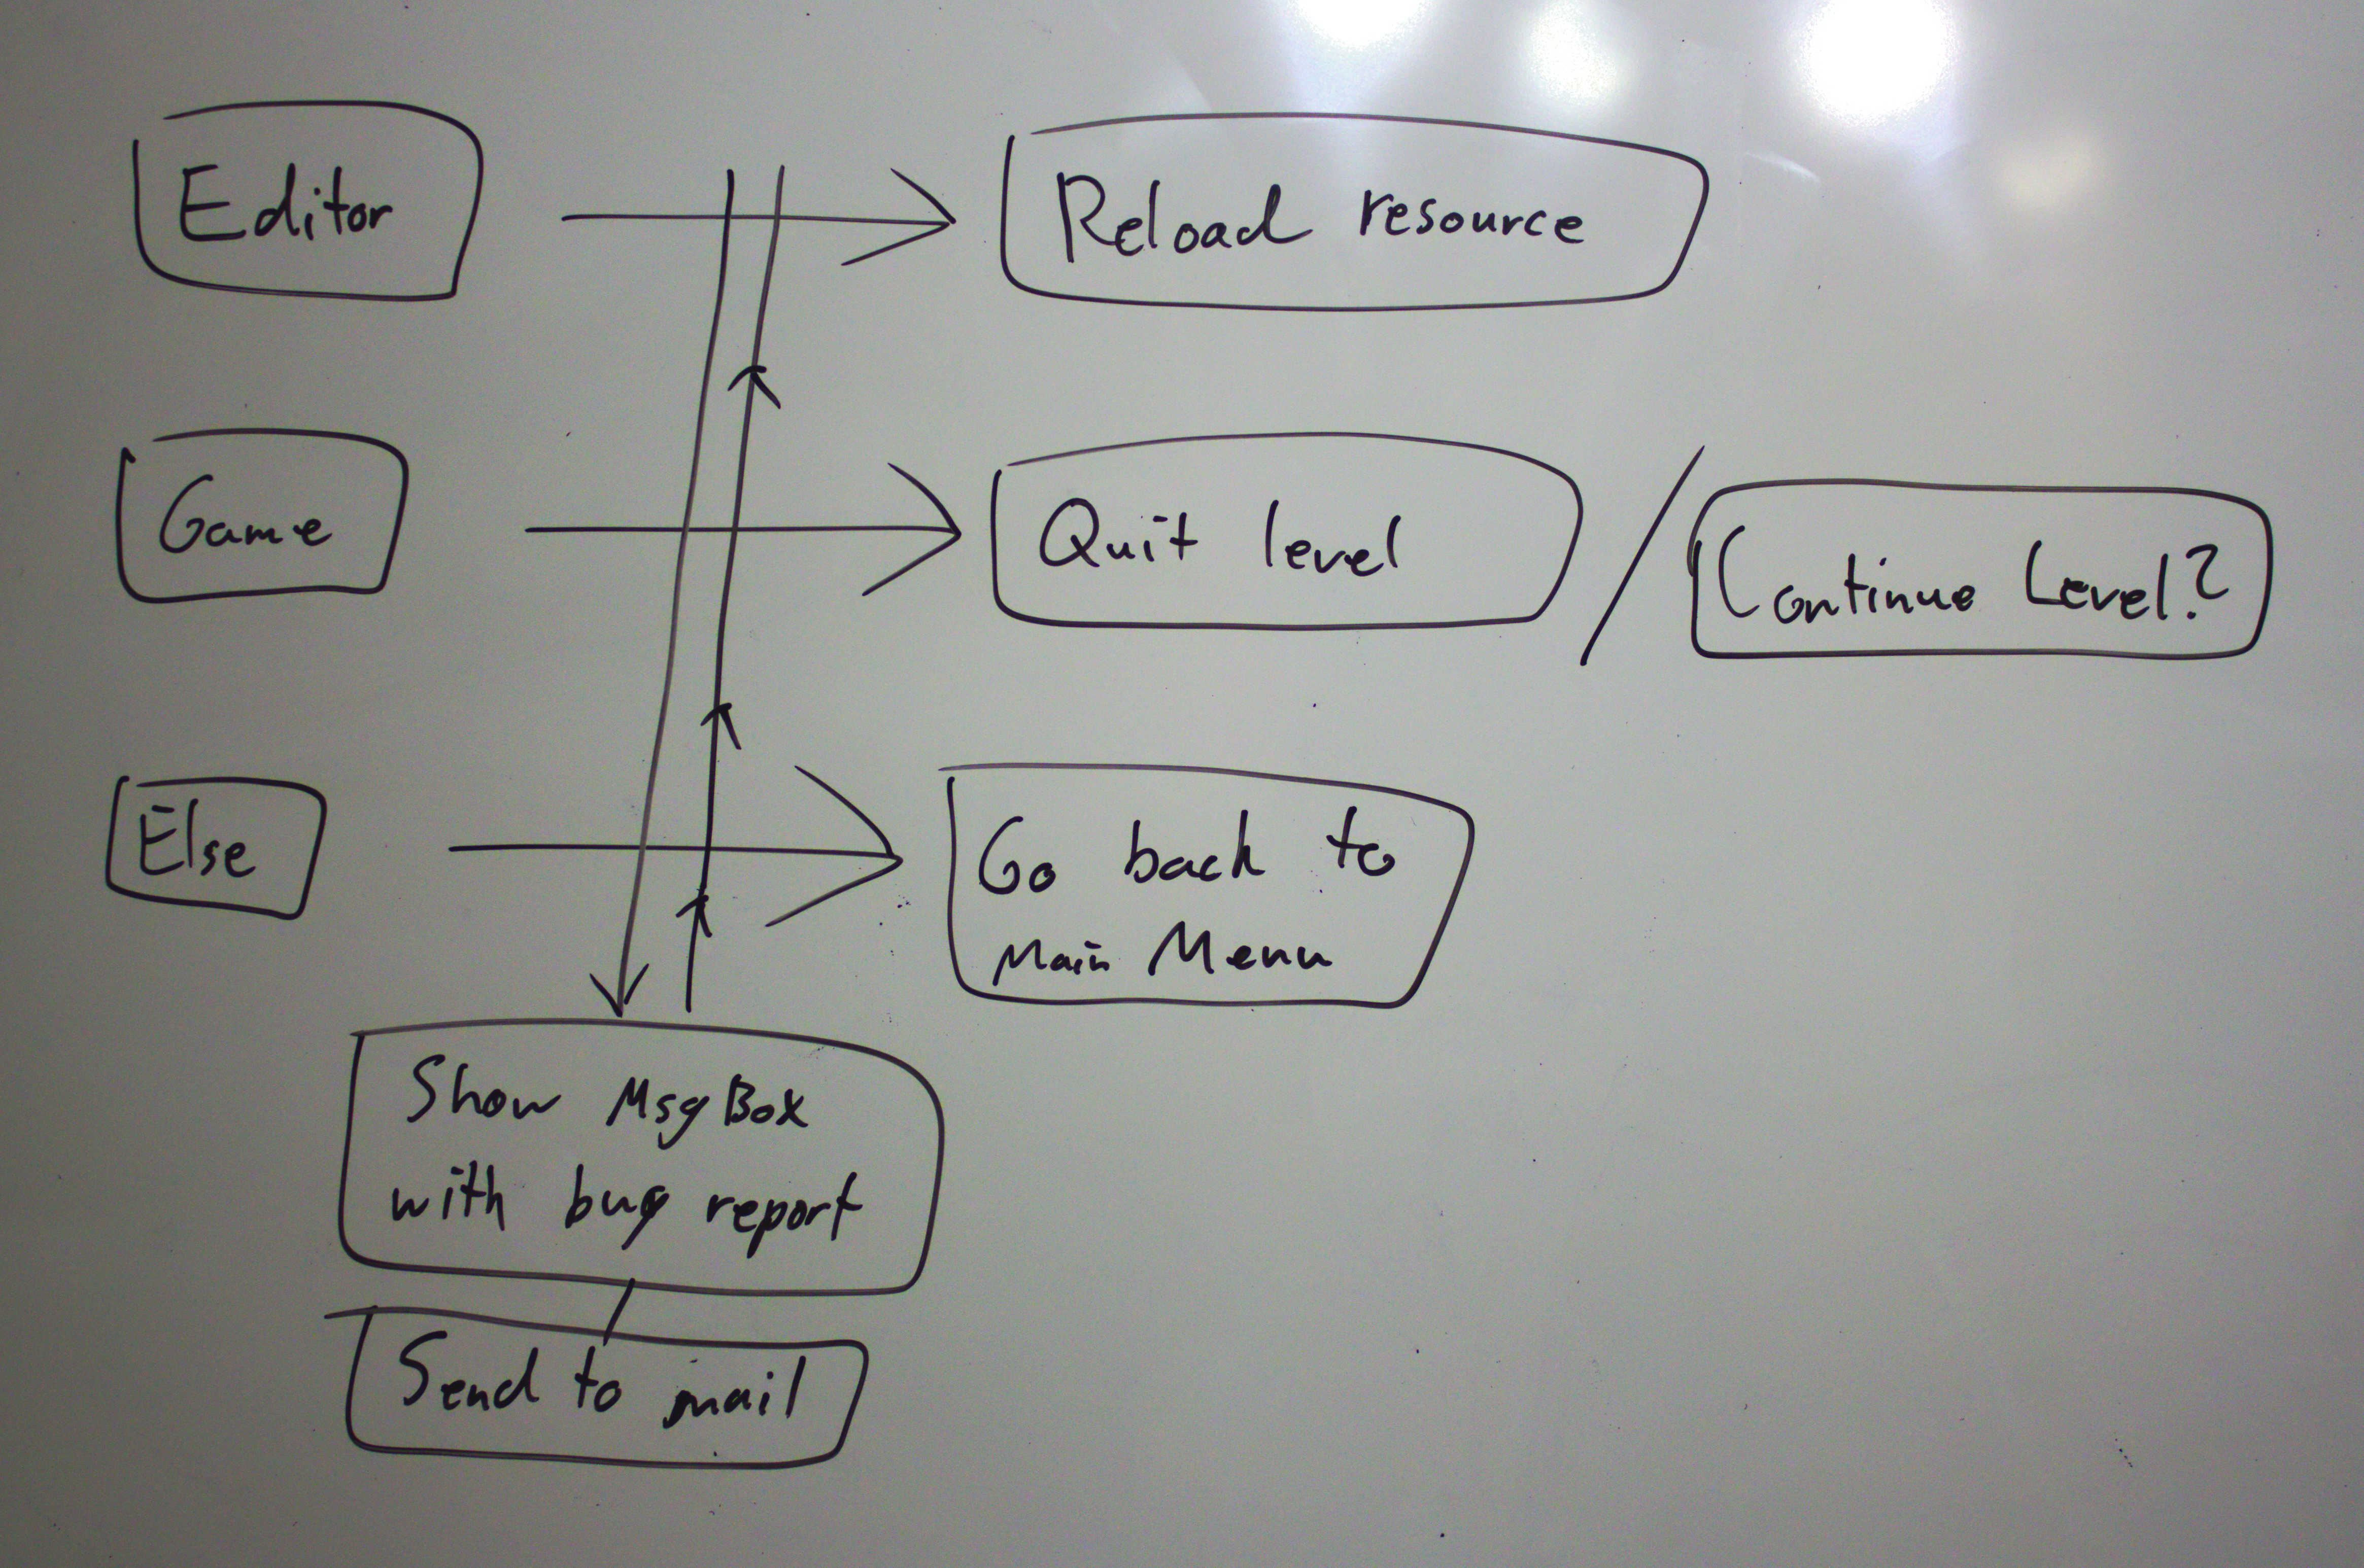 Editor
Reload resource
Game
Quit level
/
Continue Level?
Else
Go back to
Main Menu
Show MsgBox
with bug report
Send to mail